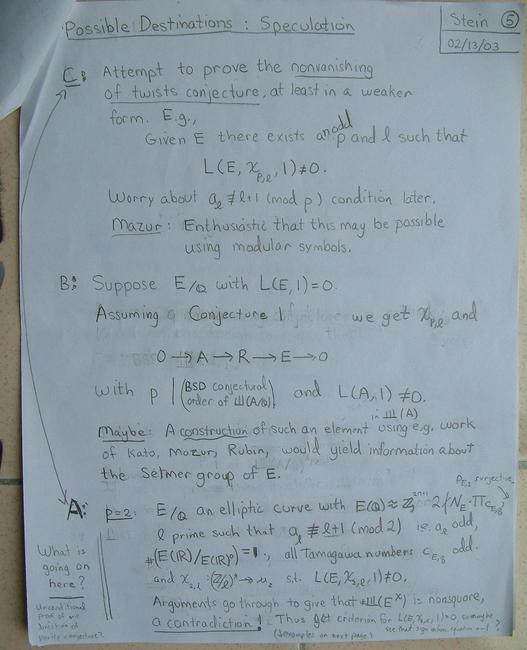 Possible Destinations : Speculation
Stein 5
02/13/03
C: Attempt to prove the nonvanishing
of twists conjecture, at least in a weaker
form. E.g.,
Given E there exists an odd p and l such that
L(E, χ_{p,l}, 1) ≠ 0.
Worry about a_l ≢ l+1 (mod p) condition later.
Mazur: Enthusiastic that this may be possible
using modular symbols.
B: Suppose E/Q with L(E,1) = 0.
Assuming Conjecture we get χ_{p,l} and
0 → A → R → E → 0
with p | (BSD conjectural order of Ш(A/Q)) and L(A,1) ≠ 0.
in Ш(A)
Maybe: A construction of such an element using e.g. work
of Kato, Mazur, Rubin, would yield information about
the Selmer group of E.
A: p=2: E/Q an elliptic curve with E(Q) ≈ 2∤N_E·∏c_{E,q}
ρ_{E,2} surjective
l prime such that a_l ≢ l+1 (mod 2) i.e. a_l odd,
#(E(R)/E(R)⁰) = 1, all Tamagawa numbers c_{E,q} odd.
and χ_{2,l}: (Z/l)* → μ_2 s.t. L(E, χ_{2,l}, 1) ≠ 0.
Arguments go through to give that #Ш(E^χ) is nonsquare,
a contradiction! Thus get criterion for L(E,χ,1)=0, so maybe
see that sign in func. equation is -1?
(examples on next page)
What is
going on
here?
Unconditional
proof of one
direction of
parity conjecture?